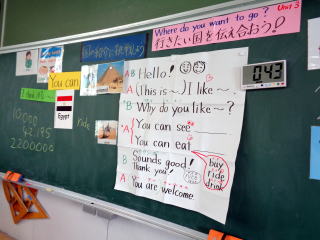 Unit 3
Where do you want to go?
行きたい国を伝え合おう!
You can
Egypt
10,000
42.195
2200000
ride
0:43
AB Hello!
A (This is~.) I like~.
B Why do you like~?
A You can see
You can eat
B Sounds good!
Thank you!
A You are welcome
buy
ride
drink